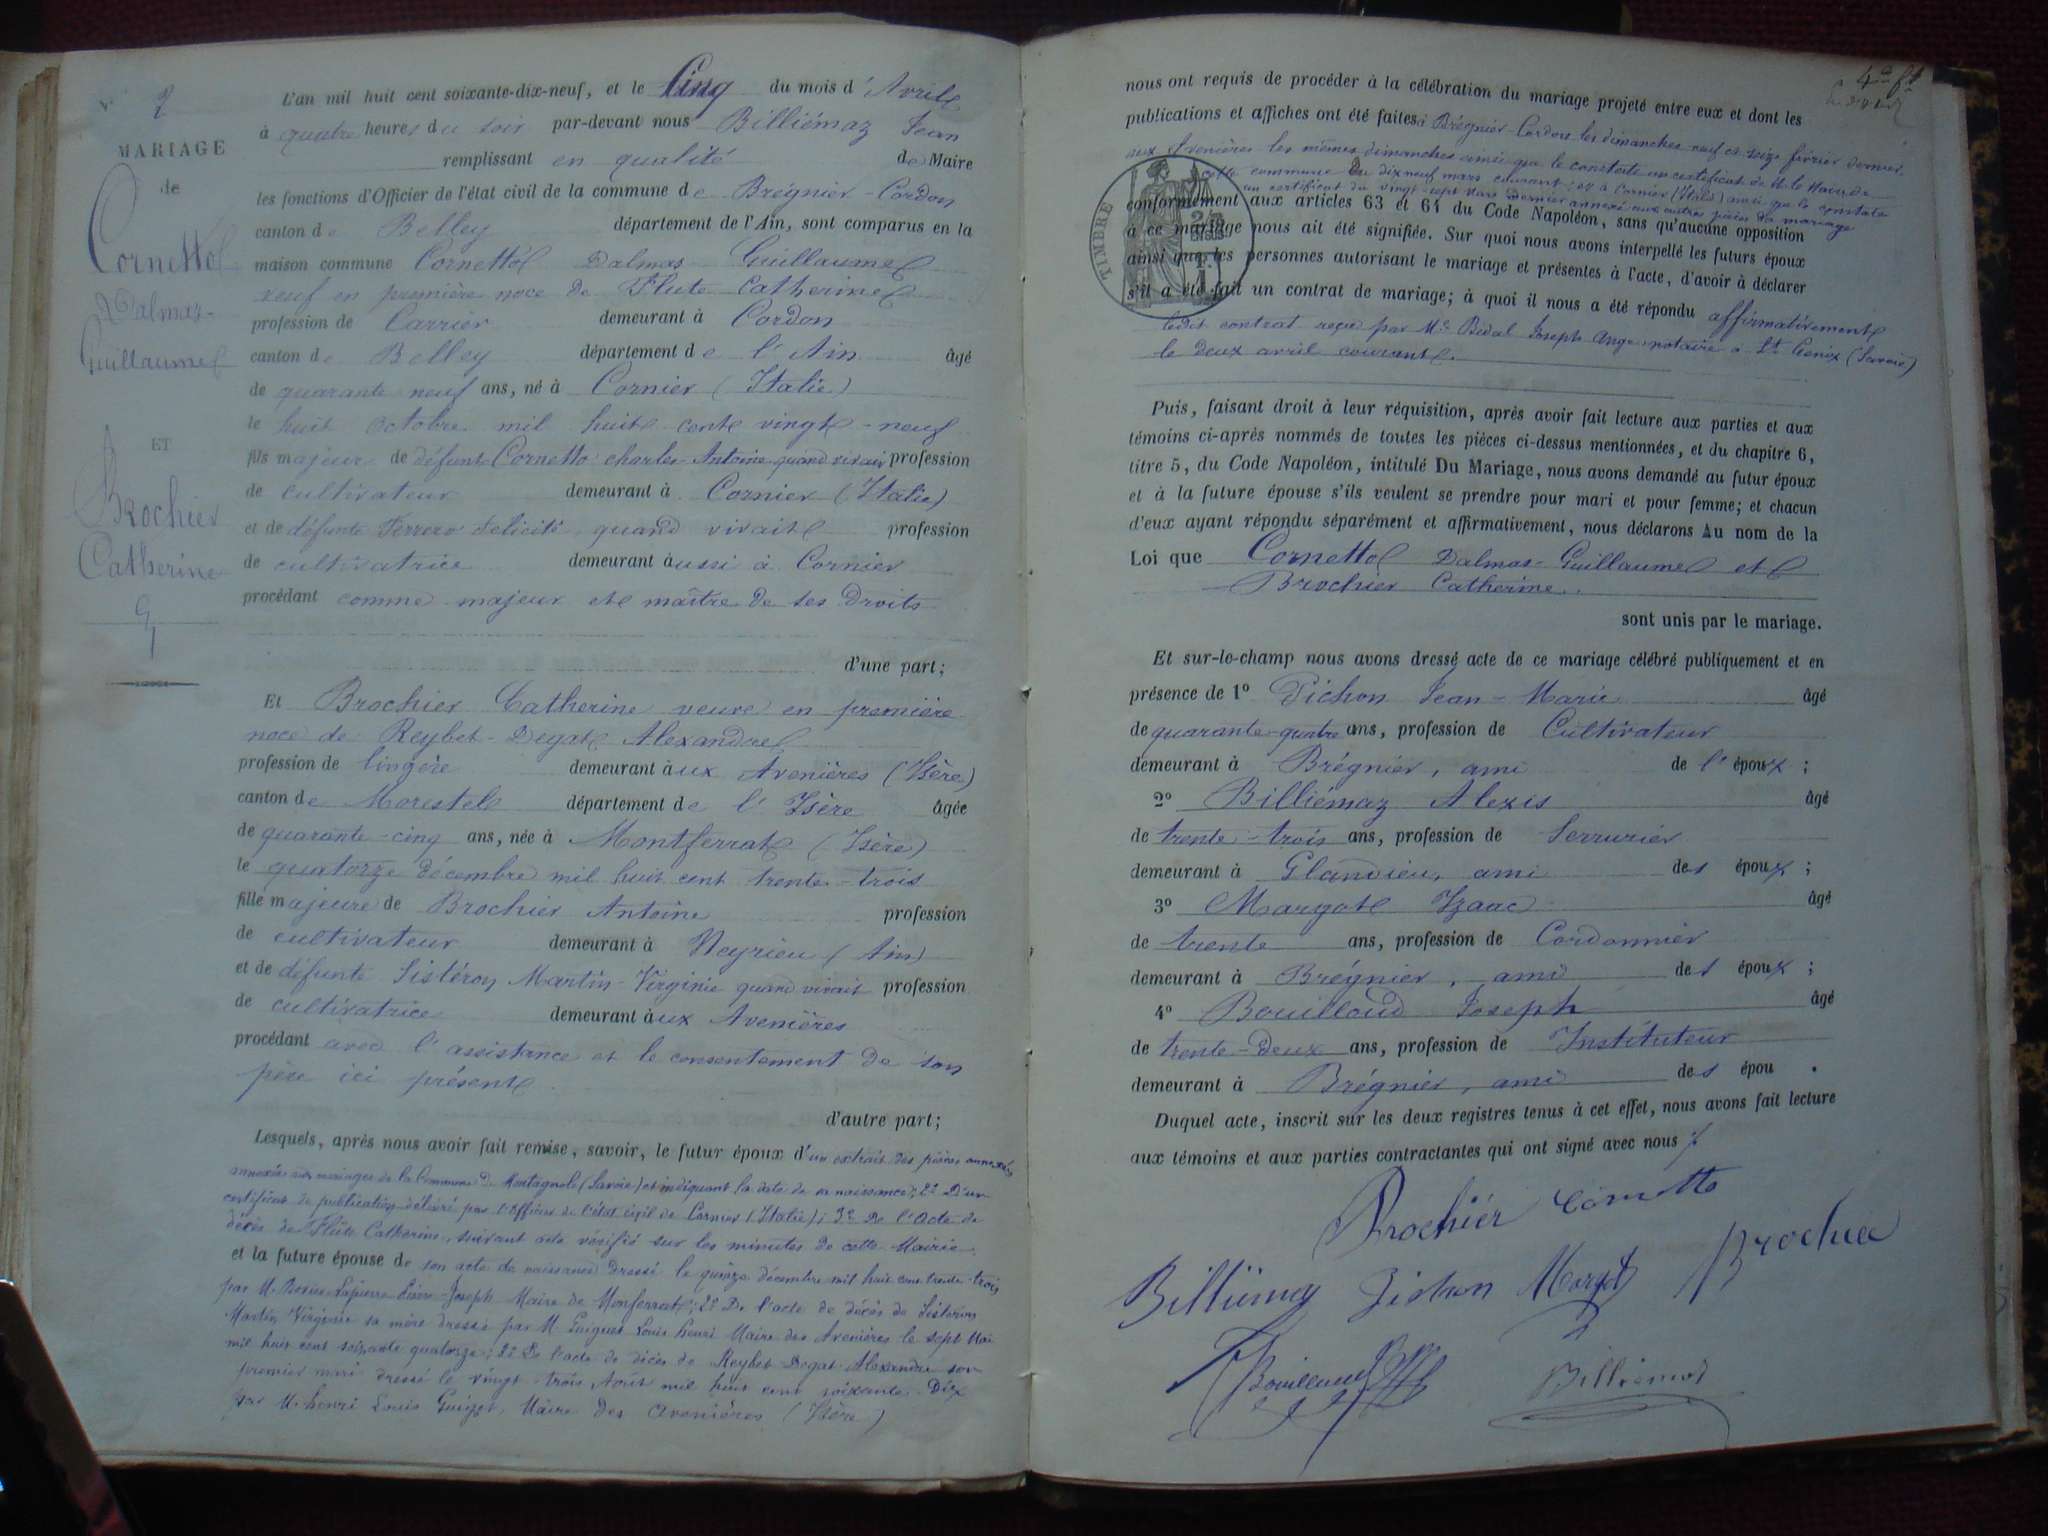 2
MARIAGE
de
Cornetto
Dalmas-
Guillaume
ET
Brochier
Catherine
L'an mil huit cent soixante-dix-neuf, et le Cinq du mois d'Avril
à quatre heures du soir par-devant nous Billiémaz Jean
remplissant en qualité de Maire
les fonctions d'Officier de l'état civil de la commune de Brégnier-Cordon
canton de Belley département de l'Ain, sont comparus en la
maison commune Cornetto Dalmas Guillaume
veuf en première noce de Flute Catherine
profession de Carrier demeurant à Cordon
canton de Belley département de l'Ain âgé
de quarante neuf ans, né à Cornier (Italie)
le huit Octobre mil huit cent vingt-neuf
fils majeur de défunt Cornetto charles Antoine quand vivait profession
de cultivateur demeurant à Cornier (Italie)
et de défunte Ferrero Felicité, quand vivait profession
de cultivatrice demeurant aussi à Cornier
procédant comme majeur et maître de ses Droits
d'une part;
Et Brochier Catherine veuve en première
noce de Reybet-Degat Alexandre
profession de lingère demeurant aux Avenières (Isère)
canton de Morestel département de l'Isère âgée
de quarante-cinq ans, née à Montferrat (Isère)
le quatorze décembre mil huit cent trente-trois
fille majeure de Brochier Antoine profession
de cultivateur demeurant à Neyrieu (Ain)
et de défunte Sistéron Martin-Virginie quand vivait profession
de cultivatrice demeurant aux Avenières
procédant avec l'assistance et le consentement de son
père ici présent
d'autre part;
Lesquels, après nous avoir fait remise, savoir, le futur époux d'un extrait des pièces annexées
annexées aux mariages de la Commune de Montagnole (Savoie) et indiquant la date de sa naissance; 2º D'un
certificat de publication délivré par l'Officier de l'état civil de Cornier (Italie); 3º De l'Acte de
décès de Flûte Catherine, suivant acte vérifié sur les minutes de cette Mairie.
et la future épouse de son acte de naissance dressé le quinze décembre mil huit cent trente-trois
par M. Lapierre Joseph Maire de Monferrat; 2º De l'acte de décès de Sistéron
Martin Virginie sa mère dressé par M. Guigues Louis henri Maire des Avenières le sept Mai
mil huit cent soixante quatorze; 2º De l'acte de décès de Reybet-Degat Alexandre son
premier mari dressé le vingt-trois Août mil huit cent soixante-Dix
par M. henri Louis Guigues, Maire des Avenières (Isère)
nous ont requis de procéder à la célébration du mariage projeté entre eux et dont les
publications et affiches ont été faites à Brégnier-Cordon les dimanches neuf et seize février dernier
aux Avenières les mêmes dimanches ainsi que le constate un certificat de M. le Maire de
cette commune du dix neuf mars courant; et à Cornier (Italie) ainsi que le constate
un certificat du vingt-sept Mars Dernier annexé aux autres pièces du mariage
conformément aux articles 63 et 64 du Code Napoléon, sans qu'aucune opposition
à ce mariage nous ait été signifiée. Sur quoi nous avons interpellé les futurs époux
ainsi que les personnes autorisant le mariage et présentes à l'acte, d'avoir à déclarer
s'il a été fait un contrat de mariage; à quoi il nous a été répondu affirmativement
ledit contrat reçu par Me Bidal Joseph Ange notaire à St Genix (Savoie)
le deux avril courant.
TIMBRE
2/10 EN SUS
Puis, faisant droit à leur réquisition, après avoir fait lecture aux parties et aux
témoins ci-après nommés de toutes les pièces ci-dessus mentionnées, et du chapitre 6,
titre 5, du Code Napoléon, intitulé Du Mariage, nous avons demandé au futur époux
et à la future épouse s'ils veulent se prendre pour mari et pour femme; et chacun
d'eux ayant répondu séparément et affirmativement, nous déclarons Au nom de la
Loi que Cornetto Dalmas-Guillaume et
Brochier Catherine
sont unis par le mariage.
Et sur-le-champ nous avons dressé acte de ce mariage célébré publiquement et en
présence de 1º Pichon Jean-Marie âgé
de quarante-quatre ans, profession de Cultivateur
demeurant à Brégnier, ami de l'époux;
2º Billiémaz Alexis âgé
de trente-trois ans, profession de Serrurier
demeurant à Glandieu, ami des époux;
3º Margot Izaac âgé
de trente ans, profession de Cordonnier
demeurant à Brégnier, ami des époux;
4º Bouilloud Joseph âgé
de trente-Deux ans, profession de Instituteur
demeurant à Brégnier, ami des épou.
Duquel acte, inscrit sur les deux registres tenus à cet effet, nous avons fait lecture
aux témoins et aux parties contractantes qui ont signé avec nous
Brochier Cornetto
Billiémaz Pichon Margot Brochier
Bouilloud Billiémaz